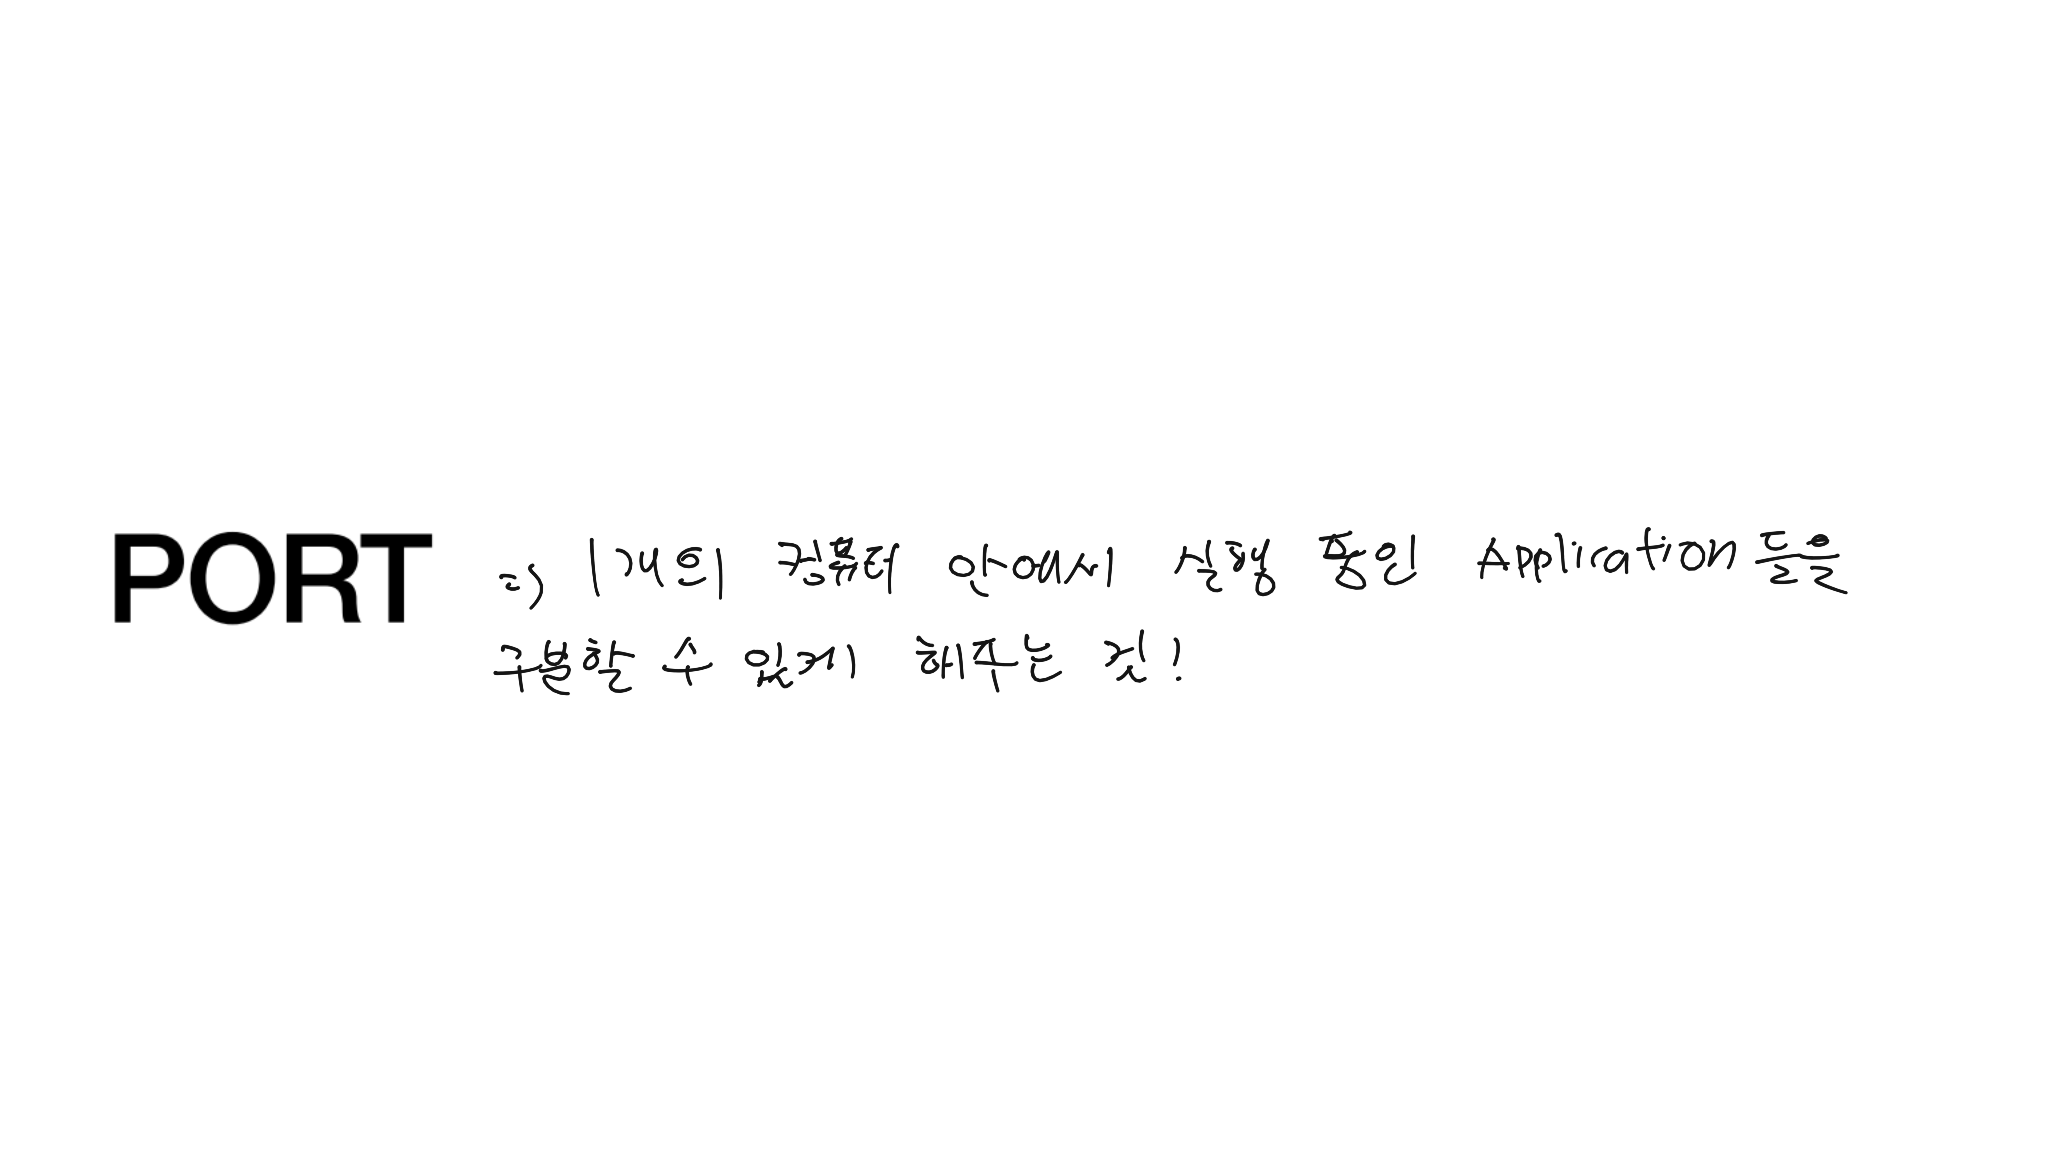 PORT => 1개의 컴퓨터 안에서 실행 중인 Application들을
구분할 수 있게 해주는 것!